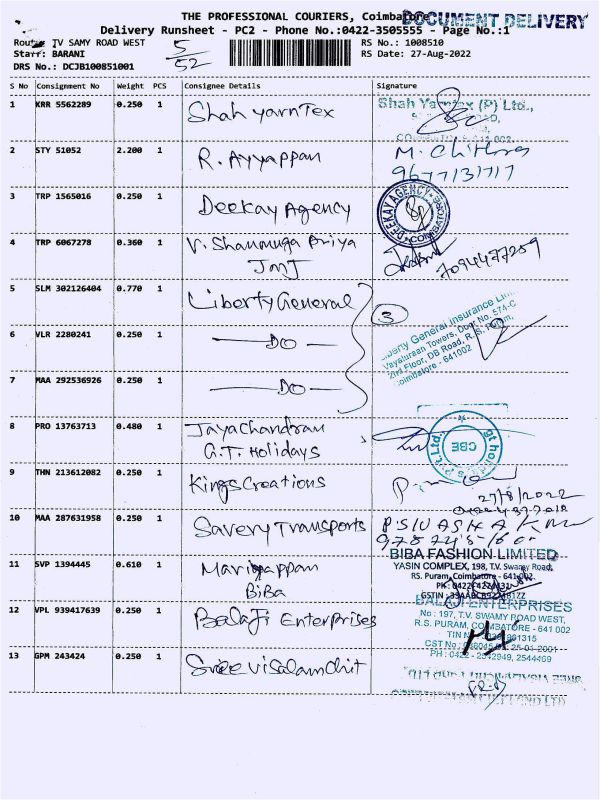 THE PROFESSIONAL COURIERS, Coimbatore
DOCUMENT DELIVERY
Delivery Runsheet - PC2 - Phone No.:0422-3505555 - Page No.:1
Route: TV SAMY ROAD WEST
5/52
RS No.: 1008510
Staff: BARANI
RS Date: 27-Aug-2022
DRS No.: DCJB100851001
S No Consignment No Weight PCS Consignee Details Signature
1 KRR 5562289 0.250 1 Shah yarnTex Shah Yarntex (P) Ltd.,
2 STY 51052 2.200 1 R. Ayyappan M. Chithra
9677131717
3 TRP 1565016 0.250 1 Deekay Agency DEEKAY AGENCY COIMBATORE
4 TRP 6067278 0.360 1 V. Shanmuga Priya
JMJ
7094477259
5 SLM 302126404 0.770 1 Liberty General 3
Liberty General Insurance
Vayaturaan Towers, Door No. 574-C
2nd Floor, DB Road, R.S. Puram,
Coimbatore - 641002
6 VLR 2280241 0.250 1 — DO —
7 MAA 292536926 0.250 1 — DO —
8 PRO 13763713 0.480 1 Jayachandran
G.T. Holidays
gt holidays Pvt. Ltd. CBE
9 THN 213612082 0.250 1 Kings Creations
27/8/2022
10 MAA 287631958 0.250 1 Savery Transports
11 SVP 1394445 0.610 1 Mariyappan
BiBa
BIBA FASHION LIMITED
YASIN COMPLEX, 198, T.V. Swamy Road,
RS. Puram, Coimbatore - 641 002.
12 VPL 939417639 0.250 1 Balaji Enterprises
BALAJI ENTERPRISES
No : 197, T.V. SWAMY ROAD WEST,
R.S. PURAM, COIMBATORE - 641 002
PH : 0422 - 2542949, 2544469
13 GPM 243424 0.250 1 Sree Visalamchit